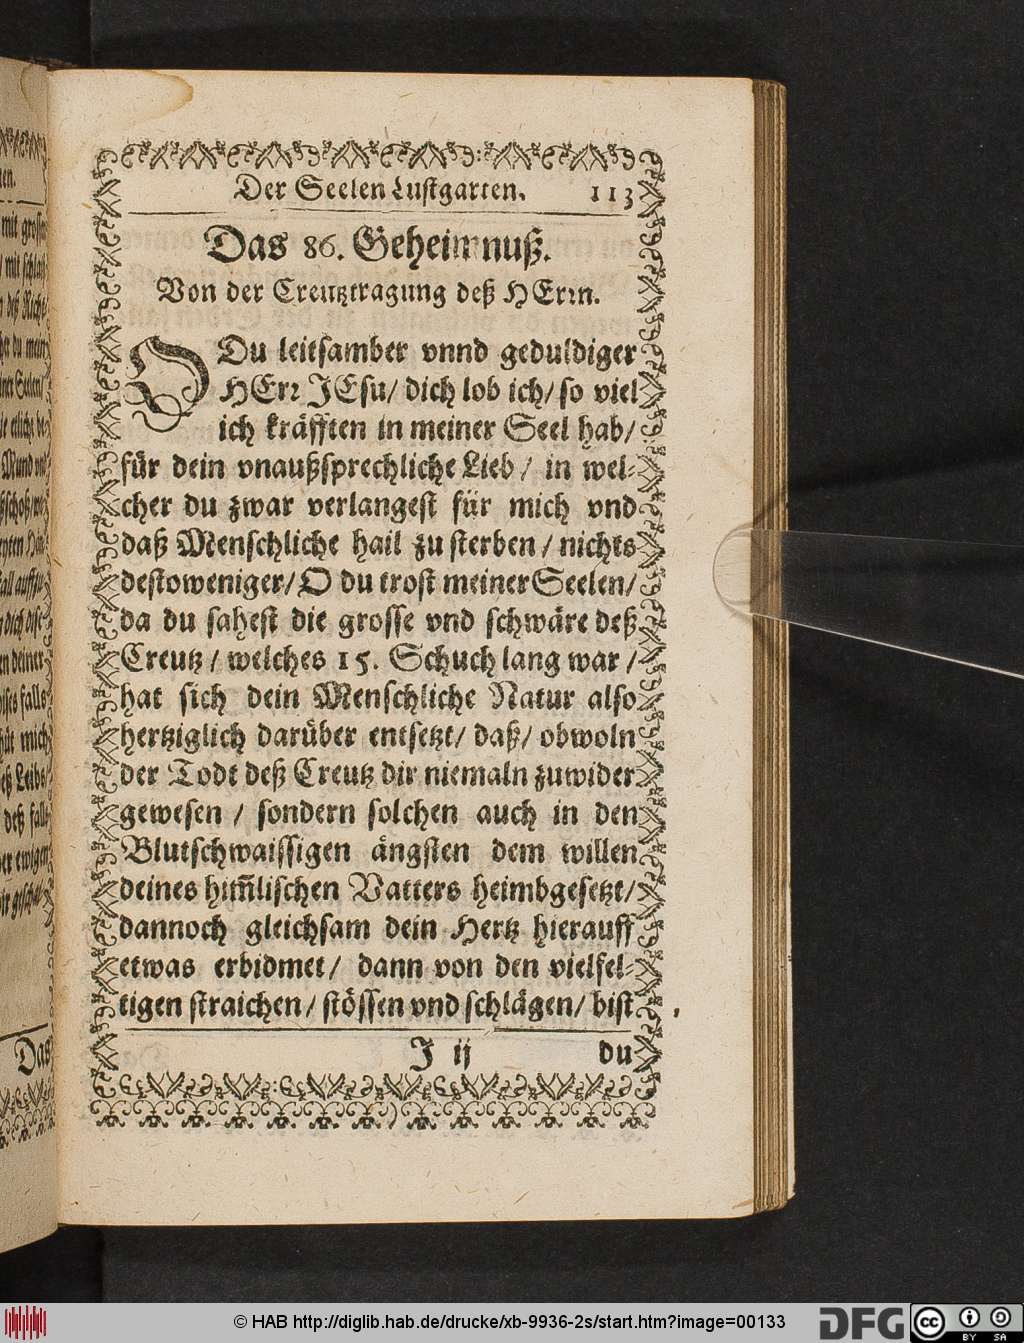 Der Seelen Lustgarten. 113
Das 86. Geheimnuß.
Von der Creutztragung deß HErrn.
O Du leitsamber vnnd geduldiger
HErr JEsu/ dich lob ich/ so viel
ich kräfften in meiner Seel hab/
für dein vnaußsprechliche Lieb/ in wel-
cher du zwar verlangest für mich vnd
daß Menschliche hail zu sterben/ nichts
destoweniger/ O du trost meiner Seelen/
da du sahest die grosse vnd schwäre deß
Creutz/ welches 15. Schuch lang war/
hat sich dein Menschliche Natur also
hertziglich darüber entsetzt/ daß/ obwoln
der Todt deß Creutz dir niemaln zuwider
gewesen/ sondern solchen auch in den
Blutschwaissigen ängsten dem willen
deines him̃lischen Vatters heimbgesetzt/
dannoch gleichsam dein Hertz hierauff
etwas erbidmet/ dann von den vielfel-
tigen straichen/ stössen vnd schlägen/ bist
J ij du
Das
© HAB http://diglib.hab.de/drucke/xb-9936-2s/start.htm?image=00133
DFG
cc BY SA